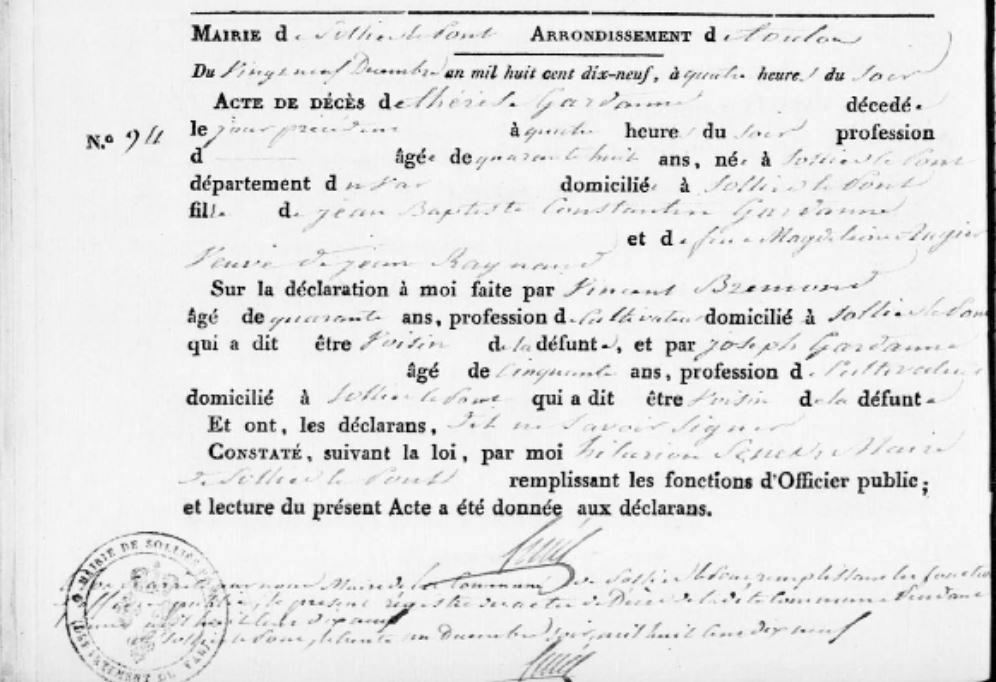 MAIRIE de Sollies le Pont ARRONDISSEMENT de Toulon
Du Vingt neuf Decembre an mil huit cent dix-neuf, à quatre heures du soir
ACTE DE DÉCÈS de thérèse Gardanne décedée
N.º 94 le jour précédent à quatre heures du soir profession
d âgée de quarante huit ans, née à Sollies le Pont
département du Var domiciliée à Sollies le Pont
fille de jean Baptiste Constantin Gardanne
et de feue Magdeleine Augier
Veuve de jean Raynaud
Sur la déclaration à moi faite par Vincent Bremond
âgé de quarante ans, profession de Cultivateur domicilié à Sollies le Pont
qui a dit être Voisin de la défunte, et par joseph Gardanne
âgé de Cinquante ans, profession de Cultivateur
domicilié à Sollies le Pont qui a dit être Voisin de la défunte
Et ont, les déclarans, dit ne Savoir Signer
CONSTATÉ, suivant la loi, par moi hilarion Maire
de Sollies le Pont remplissant les fonctions d'Officier public;
et lecture du présent Acte a été donnée aux déclarans.
MAIRIE DE SOLLIES
DÉPARTEMENT DU VAR
par nous Maire de la Commune de Sollies le Pont remplissant les fonctions
le présent régistre des actes de Décès de la dite Commune pendant
mil huit cent dix neuf
Sollies le Pont, le trente un Decembre mil huit cent dix neuf